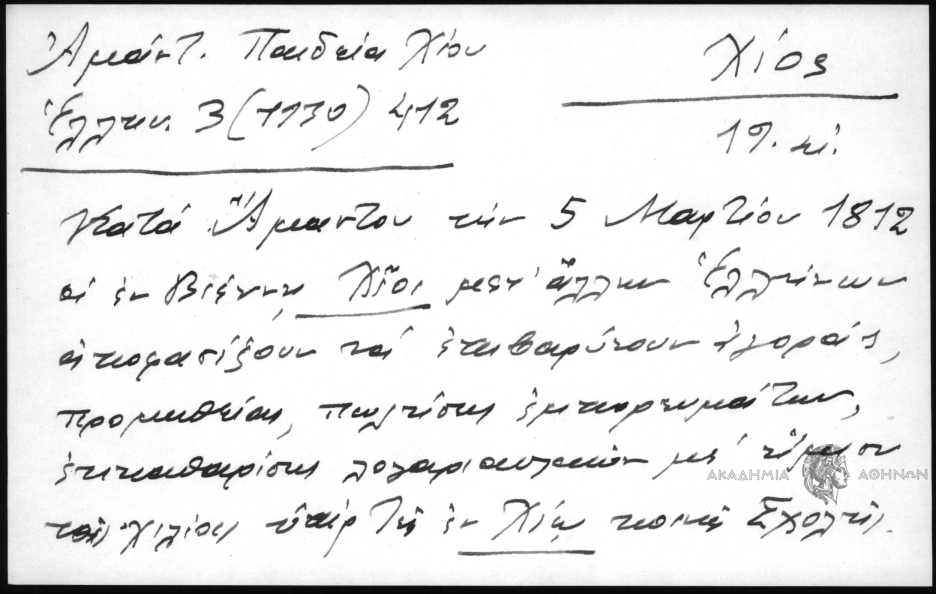 Ἀμάντ. Παιδεία Χίου
Ἑλλην. 3 (1930) 412
Χίος
19. αἰ.
Κατά Ἄμαντον τήν 5 Μαρτίου 1812
οἱ ἐν Βιέννῃ Χῖοι μετ' ἄλλων Ἑλλήνων
ἀποφασίζουν νά ἐπιβαρύνουν ἀγοράς,
προμηθείας, πωλήσεις ἐμπορευμάτων,
ἐκκαθαρίσεις λογαριασμῶν μέ ἥμισυ
τοῖς χιλίοις ὑπέρ τῆς ἐν Χίῳ κοινῆς Σχολῆς.
ΑΚΑΔΗΜΙΑ ΑΘΗΝΩΝ